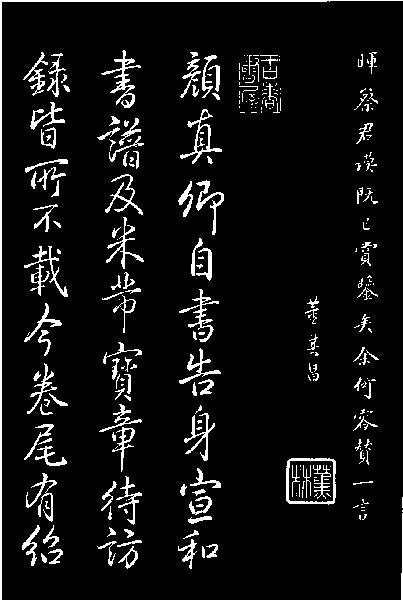 暉蔡君謨既已賞鑒矣余何容贊一言
董其昌
顏真卿自書告身宣和
書譜及米芾寶章待訪
録皆所不載今卷尾有紹